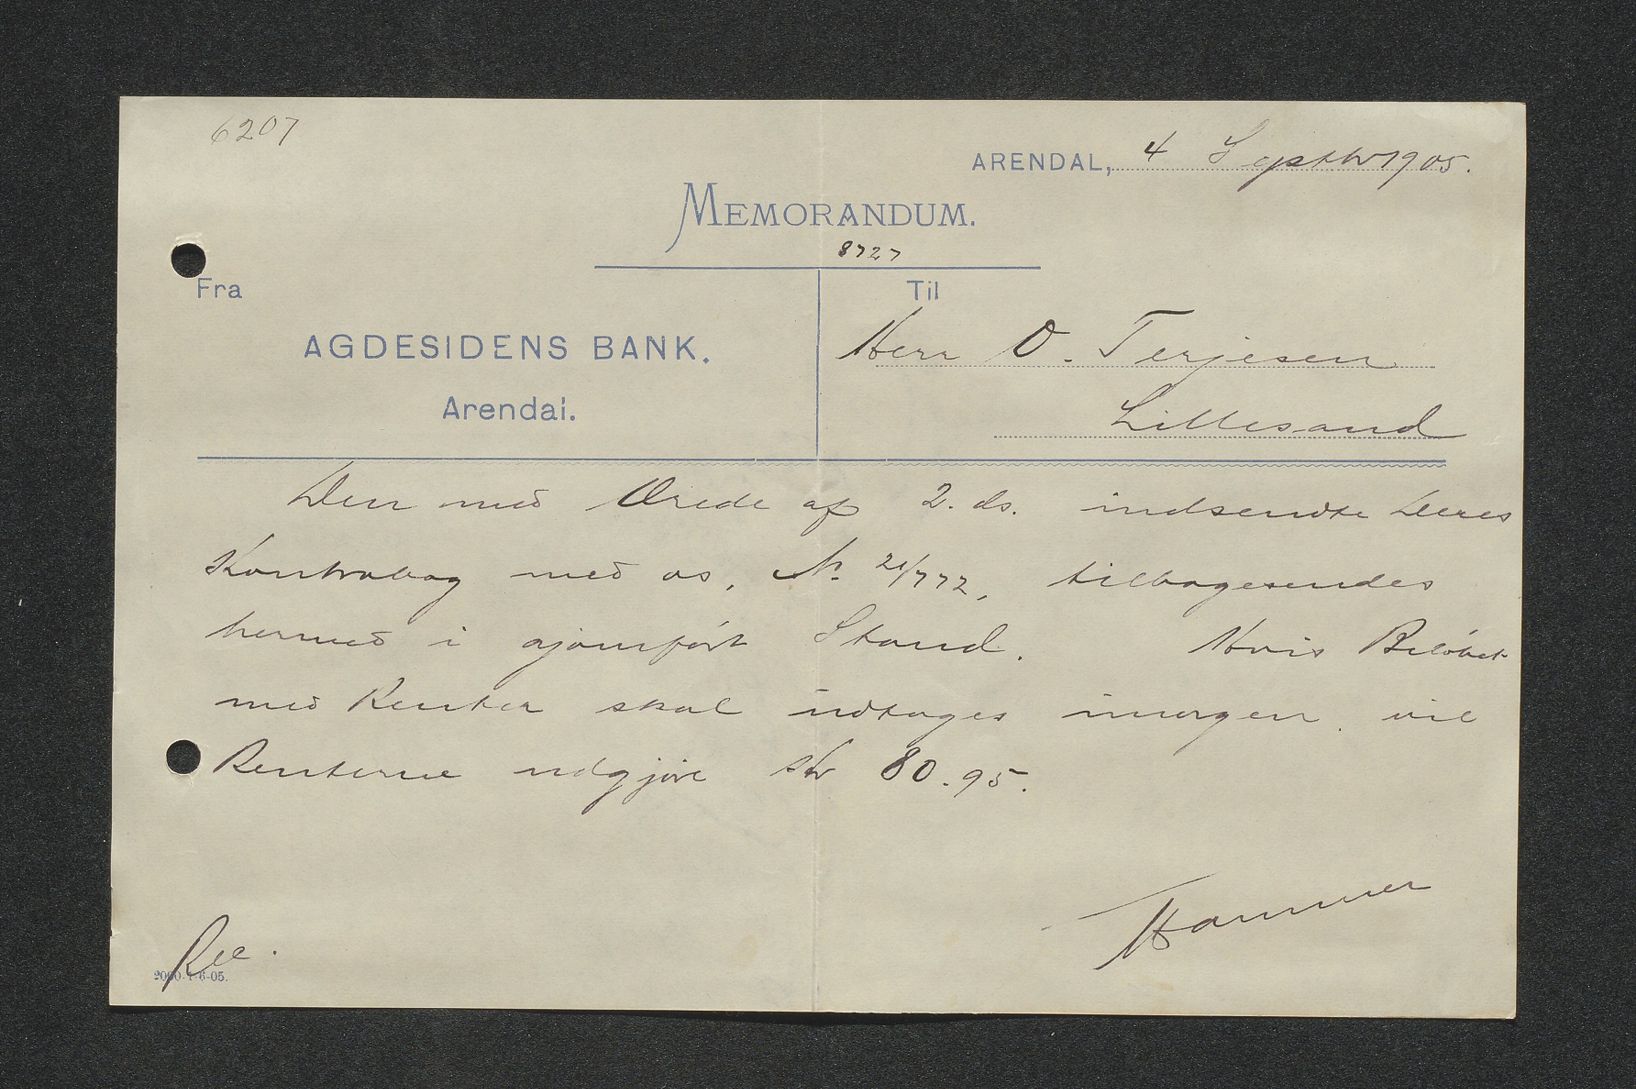 6207
ARENDAL, 4 Septbr 1905.
MEMORANDUM.
8727
Fra
Til
AGDESIDENS BANK.
Arendal.
Herr O. Terjesen
Lillesand
Den med Ærede af 2. ds. indsendte Deres
Kontrabog med os, No. 21/772, tilbagesendes
hermed i ajourført Stand. Hvis Beløbet
med Renter skal udtages imorgen, vil
Renterne udgjøre Kr 80.95.
Hammer
Rec.
2000-1-6-05.